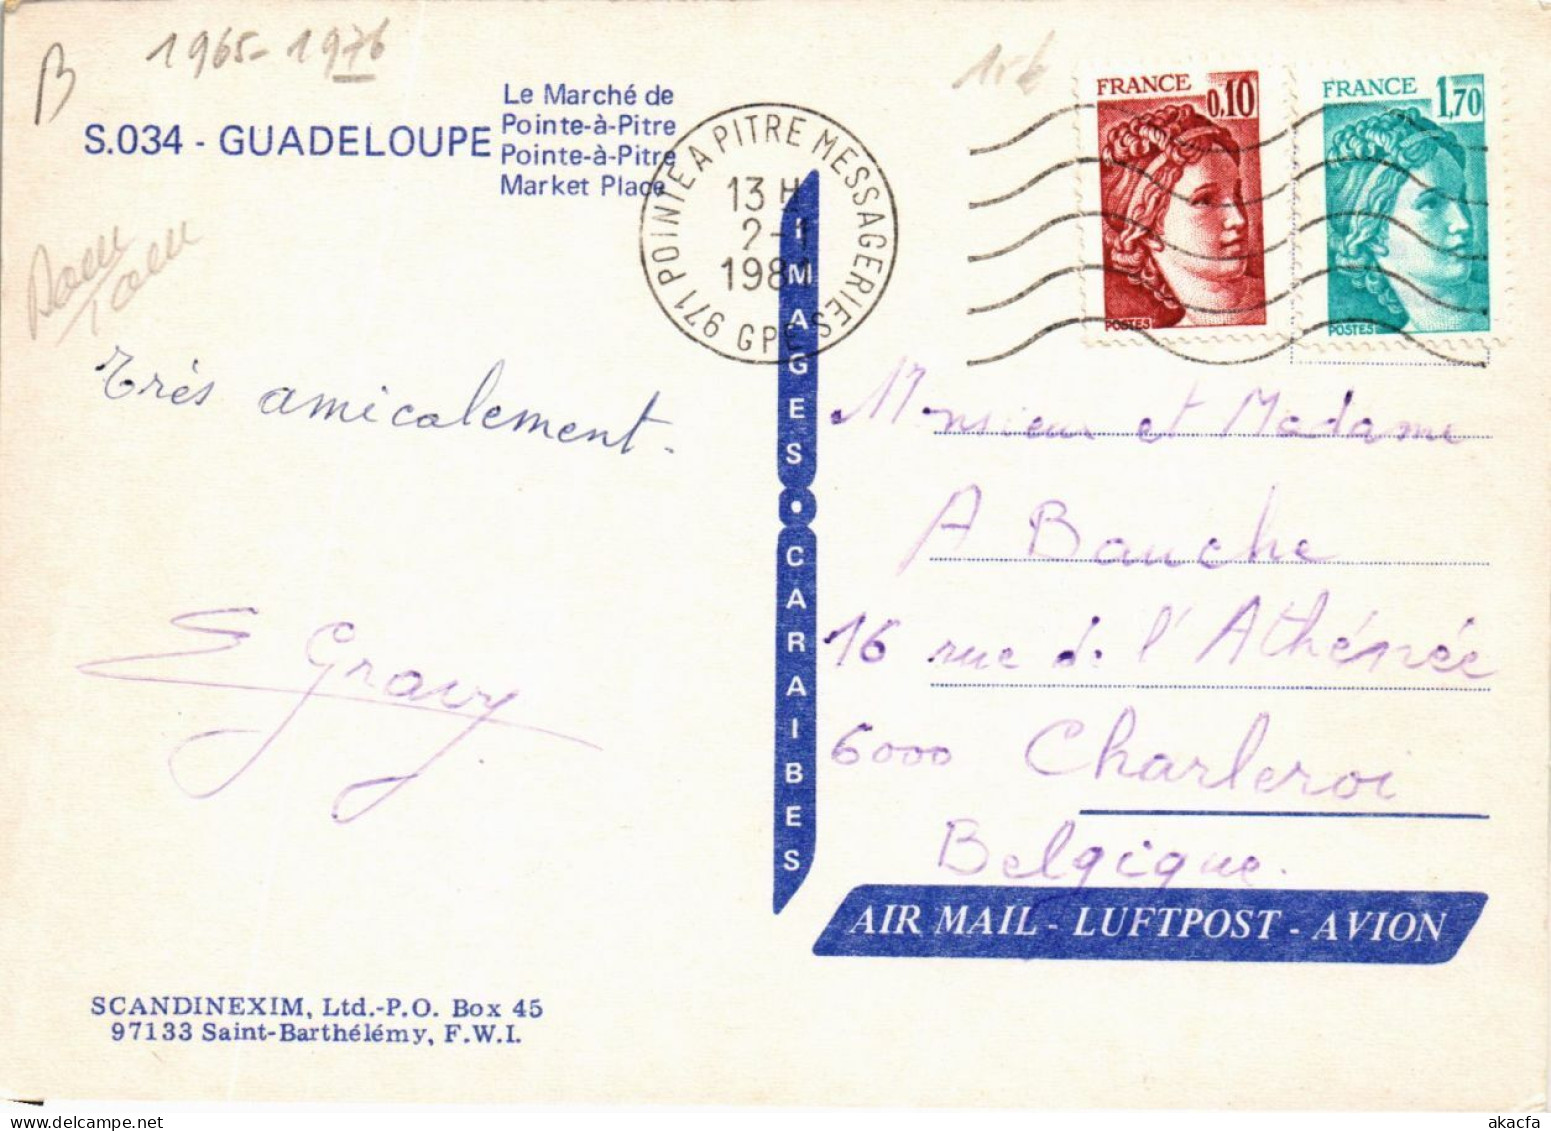 B
1965-1976
S.034 - GUADELOUPE
Le Marché de
Pointe-à-Pitre
Pointe-à-Pitre
Market Place
971 POINTE A PITRE MESSAGERIES GPE
13 H
2-1
1981
FRANCE
0,10
POSTES
FRANCE
1,70
POSTES
très amicalement.
E Gravy
IMAGES • CARAIBES
Monsieur et Madame
A Bauche
16 rue de l'Athénée
6000 Charleroi
Belgique.
AIR MAIL - LUFTPOST - AVION
SCANDINEXIM, Ltd.-P.O. Box 45
97133 Saint-Barthélémy, F.W.I.
delcampe.net
akacfa